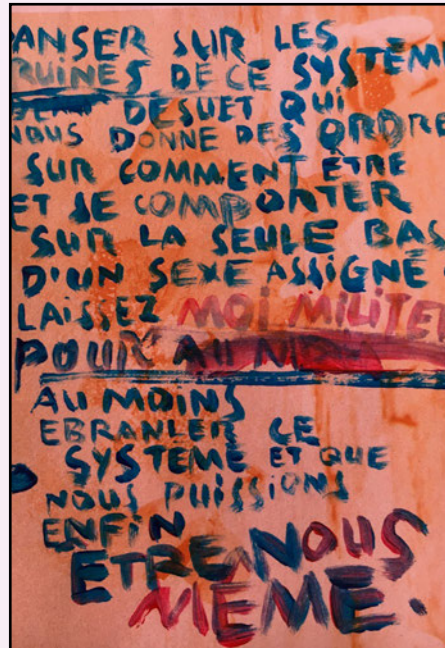 ANSER SUR LES
RUINES DE CE SYSTÈM
DESUET QUI
NOUS DONNE DES ORDRE
SUR COMMENT ÊTRE
ET SE COMPORTER
SUR LA SEULE BAS
D'UN SEXE ASSIGNÉ
LAISSEZ MOI MILITER
POUR AU
AU MOINS
EBRANLER CE
SYSTEME ET QUE
NOUS PUISSIONS
ENFIN
ETRE NOUS
MÊME.